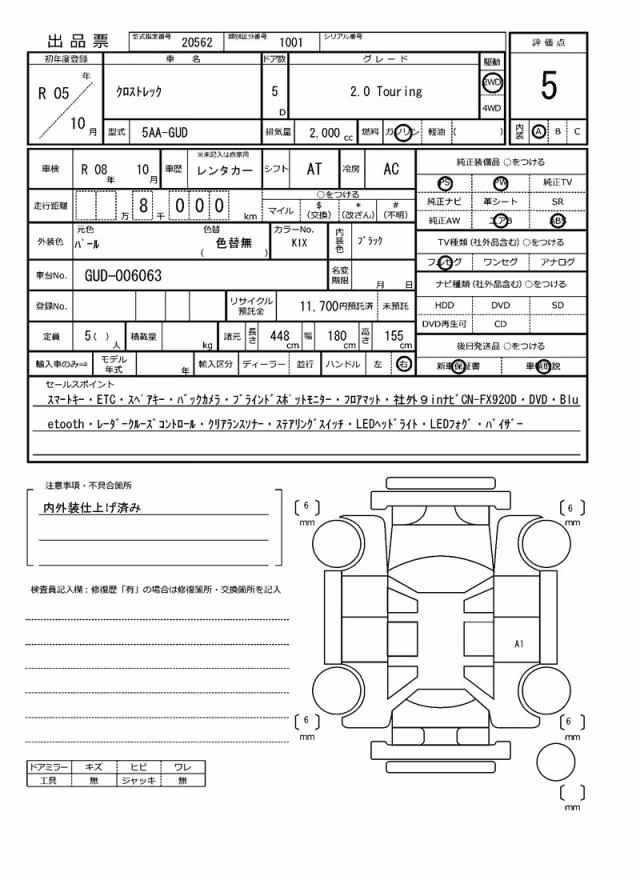 出品票 型式指定番号 20562 類別区分番号 1001 シリアル番号
初年度登録 車名 ドア数 グレード 駆動 評価点
R 05 年 10 月 クロストレック 5 D 2.0 Touring 2WD 4WD 5
型式 5AA-GUD 排気量 2,000 cc 燃料 ガソリン 軽油 ( ) 内装 A B C
車検 R 08 年 10 月 車歴 ※未記入は自家用 レンタカー シフト AT 冷房 AC 純正装備品 ○をつける
PS PW 純正TV
走行距離 万 8 千 0 0 0 km ○をつける 純正ナビ 革シート SR
マイル $ (交換) * (改ざん) # (不明) 純正AW エアB ABS
外装色 元色 パール 色替 色替無 ( ) カラーNo. KIX 内装色 ブラック TV種類 (社外品含む) ○をつける
フルセグ ワンセグ アナログ
車台No. GUD-006063 名変期限 月 日 ナビ種類 (社外品含む) ○をつける
登録No. リサイクル預託金 11,700円預託済 未預託 HDD DVD SD
DVD再生可 CD
定員 5 ( ) 人 積載量 kg 諸元 長さ 448 cm 幅 180 cm 高さ 155 cm 後日発送品 ○をつける
輸入車のみ⇒ モデル年式 年 輸入区分 ディーラー 並行 ハンドル 左 右 新車保証書 車輌取説
セールスポイント
スマートキー・ETC・スペアキー・バックカメラ・ブラインドスポットモニター・フロアマット・社外9inナビCN-FX920D・DVD・Blu
etooth・レーダークルーズコントロール・クリアランスソナー・ステアリングスイッチ・LEDヘッドライト・LEDフォグ・バイザー
注意事項・不具合箇所
内外装仕上げ済み
検査員記入欄：修復歴「有」の場合は修復箇所・交換箇所を記入
( 6 ) mm ( 6 ) mm
A1
( 6 ) mm ( 6 ) mm
( ) mm
ドアミラー キズ ヒビ ワレ
工具 無 ジャッキ 無